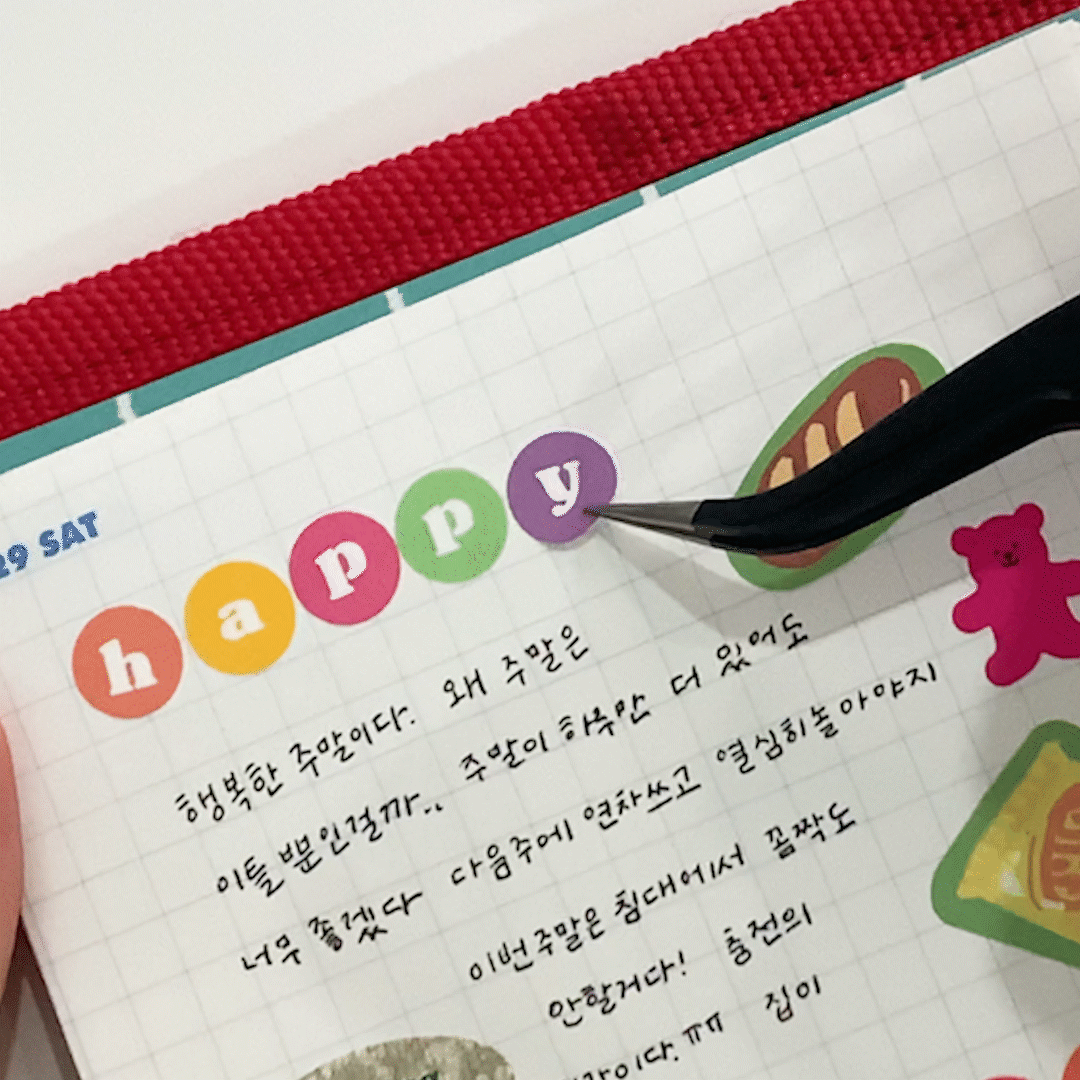 29 SAT
happy
행복한 주말이다. 왜 주말은
이틀 뿐인걸까.. 주말이 하루만 더 있어도
너무 좋겠다 다음주에 연차쓰고 열심히놀아야지
이번주말은 침대에서 꼼짝도
안할거다! 충전의
이다.ㅠㅠ 집이